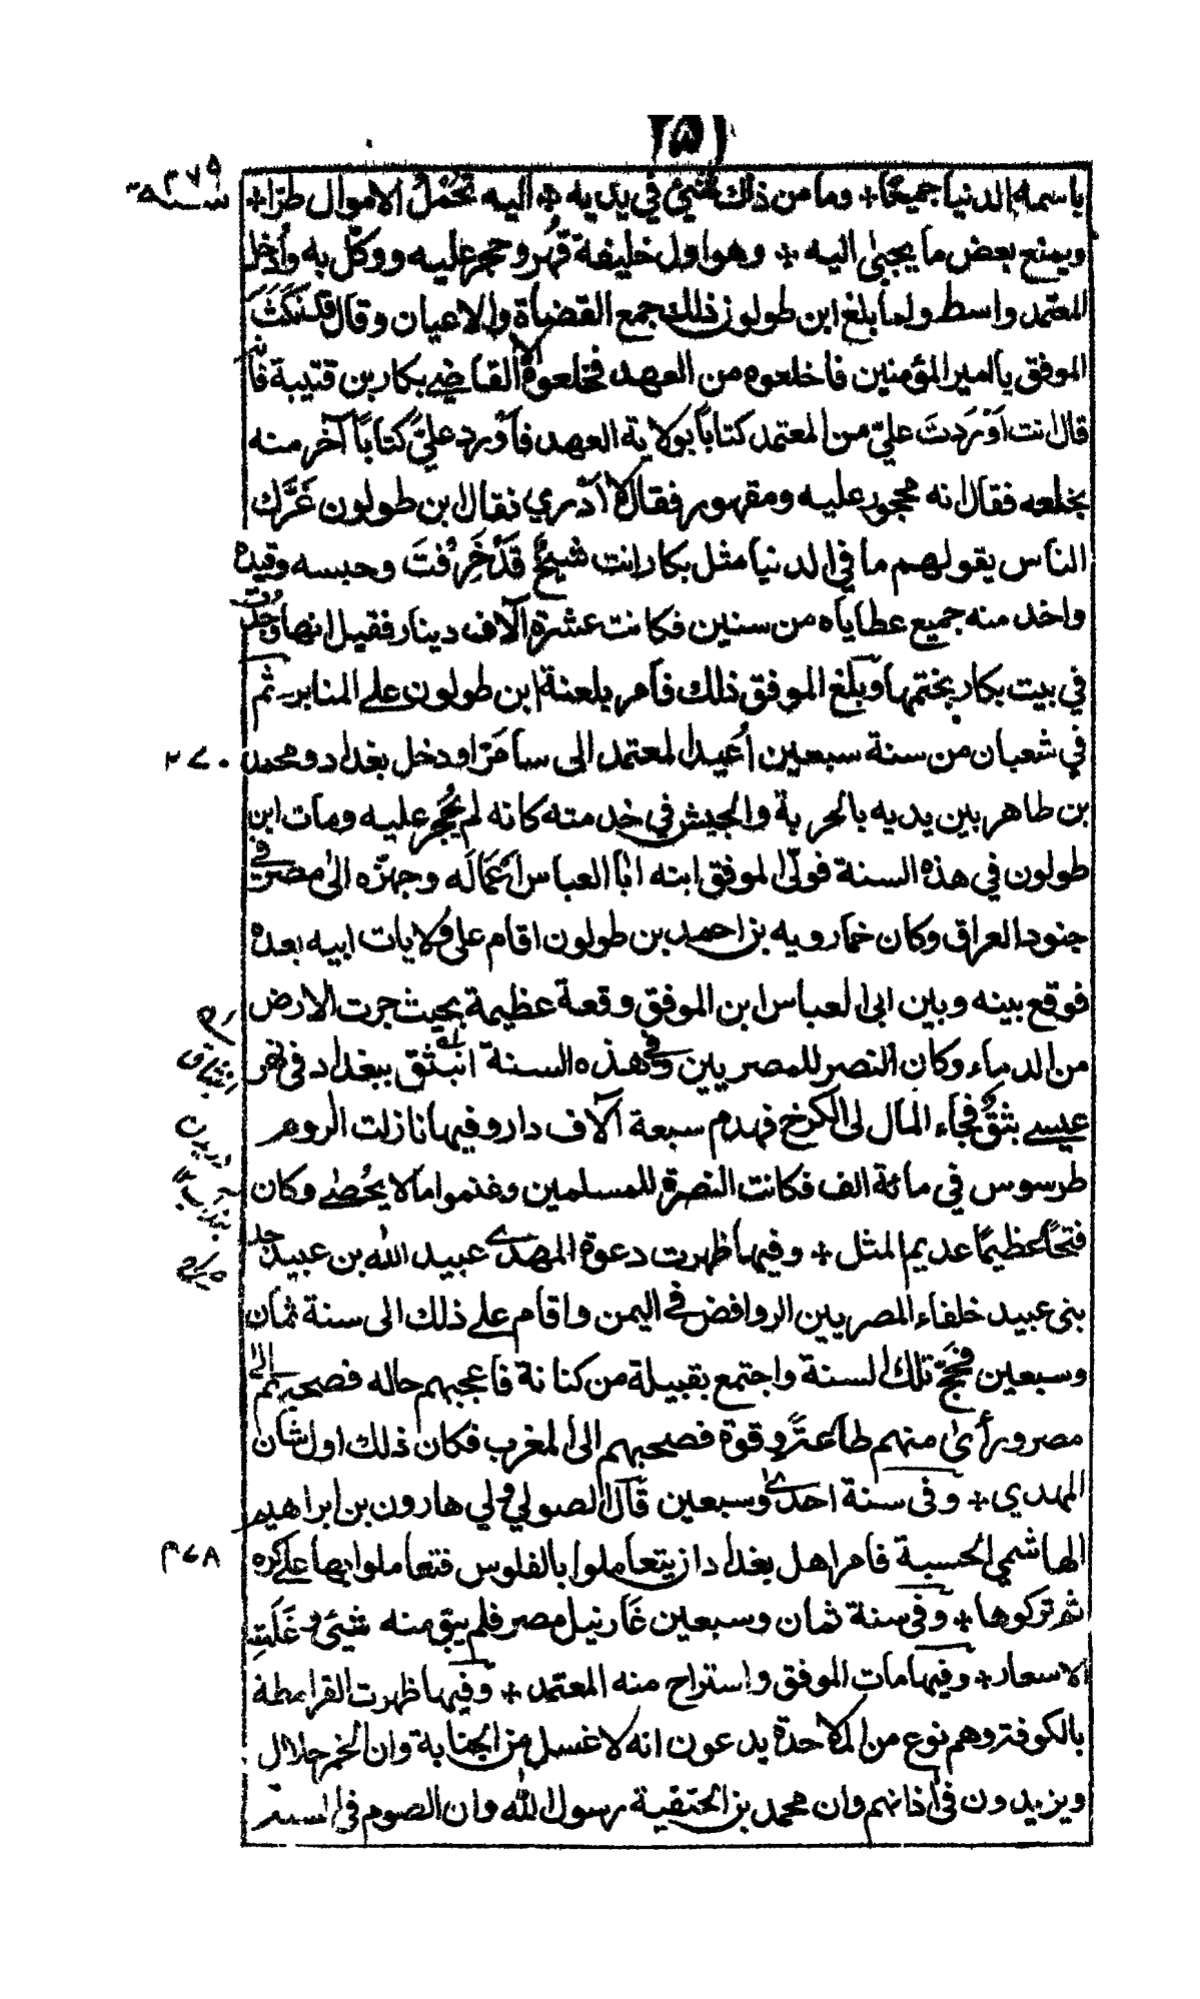 باسمه الدنيا جميعًا+ وما من ذلك شيئ في يديه + اليه تُحْمَلُ الاموال طرّا+
ويمنع بعض ما يجبىٰ اليه + وهو اول خليفة قُهر وحجر عليه ووكّل به وأُدخل
المعتمد واسط ولما بلغ ابن طولون ذلك جمع القضاة والاعيان وقال قد نَكَثَ
الموفق باامير المؤمنين فاخلعوه من العهد فخلعوه الا القاضي بكار بن قتيبة فانه
قال انت اَوْرَدتَ عليّ من المعتمد كتابًا بولاية العهد فاَوْرِد عليَّ كتابًا آخر منه
بخلعه فقال انه محجور عليه ومقهور فقال لا اَدْري فقال ابن طولون غَرَّك
الناس بقولهم ما في الدنيا مثل بكار انت شيخٌ قَدْ خَرِفْتَ وحبسه وقيده
واخذ منه جميع عطاياه من سنين فكانت عشرة آلاف دينار فقيل انها وُجدت
في بيت بكار بختمها وبلغ الموفق ذلك فامر بلعنة ابن طولون على المنابر ثم
في شعبان من سنة سبعين اُعيد المعتمد الى سامَرّا ودخل بغداد ومحمد
٢٧٠
بن طاهر بين يديه بالحربة والجيش في خدمته كانه لم يُحْجَر عليه ومات ابن
طولون في هذه السنة فولّى الموفق ابنه ابا العباس اَعْمَالَه وجهزّه الى مصر في
جنود العراق وكان خمارويه بن احمد بن طولون اقام على وُلايات ابيه بعده
فوقع بينه وبين ابى العباس ابن الموفق وقعة عظيمة بحيث جرت الارض
من الدماء وكان النصر للمصريين وفي هذه السنة انبَثَق ببغداد في نهر
عيسى بثقٌ فجاء المال لى الكرخ فهدم سبعة آلاف دار وفيها نازلت الروم
طرسوس في مائة الف فكانت النصرة للمسلمين وغنموا مالا يُحْصٰى وكان
فتحًا عظيمًا عديم المثل + وفيها ظهرت دعوة المهدي عبيد الله بن عبيد جد
بنى عبيد خلفاء المصريين الروافض في اليمن واقام على ذلك الى سنة ثمان
وسبعين فحجّ تلك السنة واجتمع بقبيلة من كنانة فاعجبهم حاله فصحبهم الى
مصر ورأىٰ منهم طاعةً وقوة فصحبهم الى المغرب فكان ذلك اول شان
المهدي+ وفى سنة احدى وسبعين قال الصولي وُلي هارون بن ابراهيم
الهاشمي الحسبة فامر اهل بغداد ان يتعاملوا بالفلوس فتعاملوا بها على كره
ثم تركوها+ وفي سنة ثمان وسبعين غَار نيل مصر فلم يبق منه شيئ وغَلَتِ
٢٧٨
الاسعار+ وفيها مات الموفق واستراح منه المعتمد + وفيها ظهرت القرامطة
بالكوفة وهم نوع من الملاحدة يدعون انه لا غسل من الجنابة وان الخمر حلال
ويزيدون في اذانهم وان محمد بن الحنفية رسول الله وان الصوم في السنة